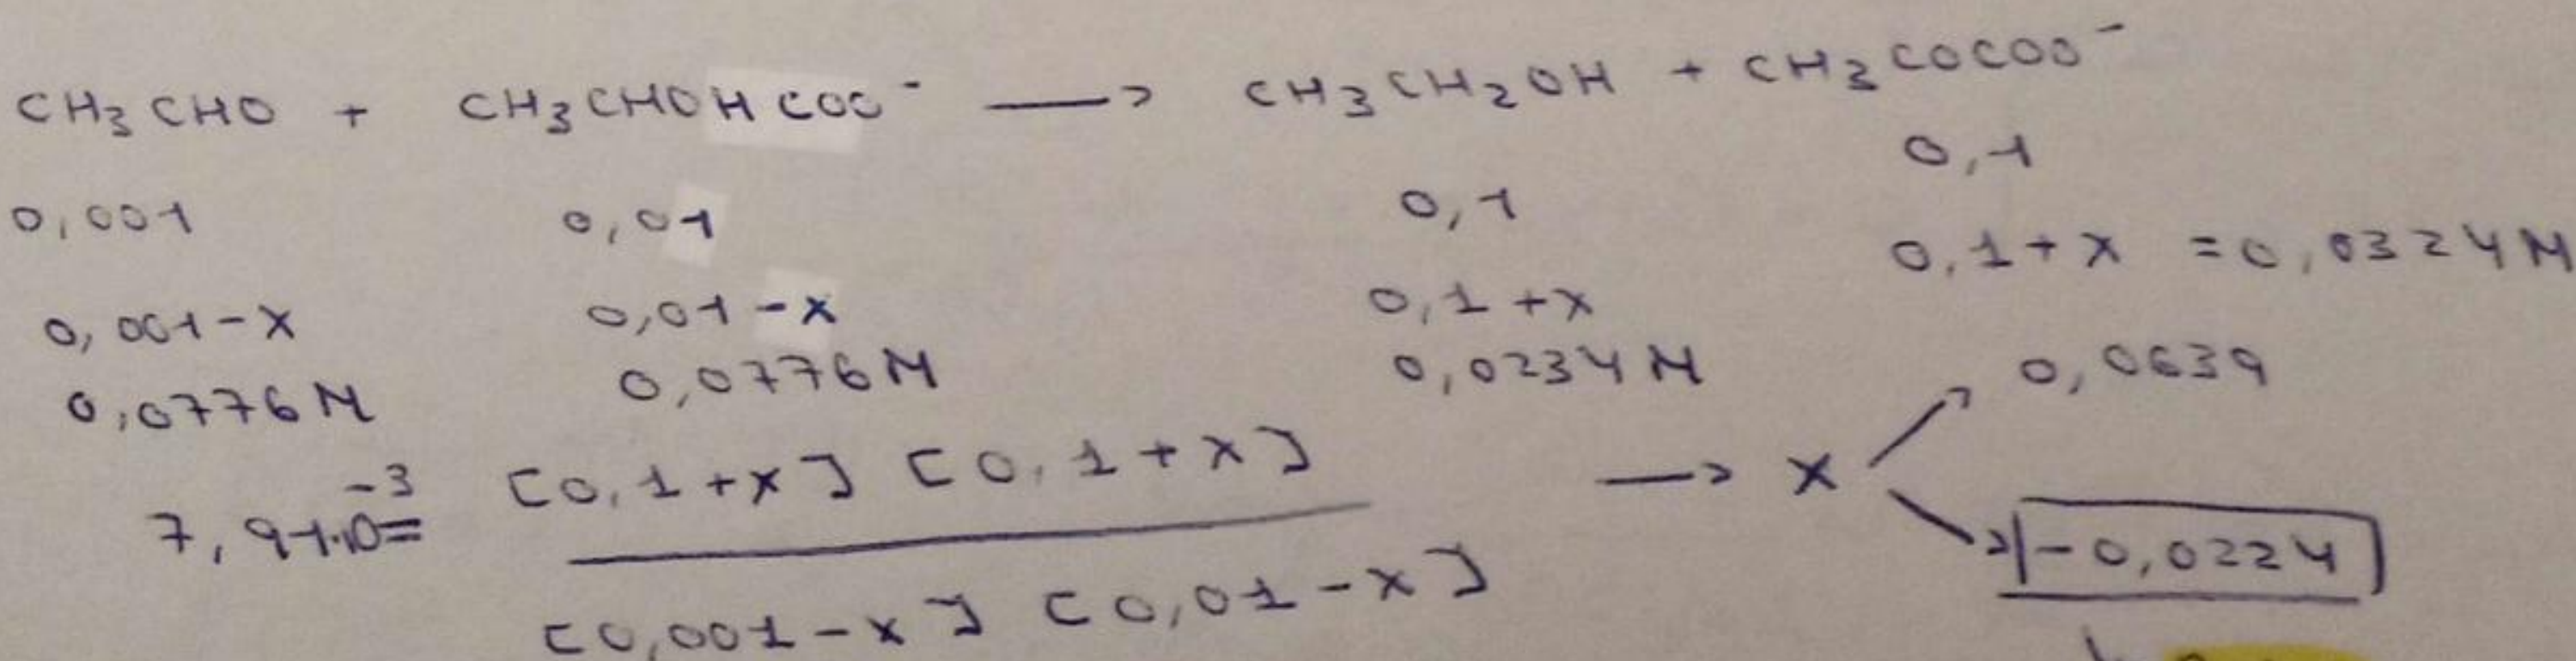 CH3CHO + CH3CHOHCOO- → CH3CH2OH + CH3COCOO-
0,001 0,01 0,1 0,1
0,001-x 0,01-x 0,1+x 0,1+x = 0,0324M
0,0776M 0,0776M 0,0234M
7,91·10-3 = [0,1+x][0,1+x] / [0,001-x][0,01-x] → x ↗ 0,0639
↘ -0,0224